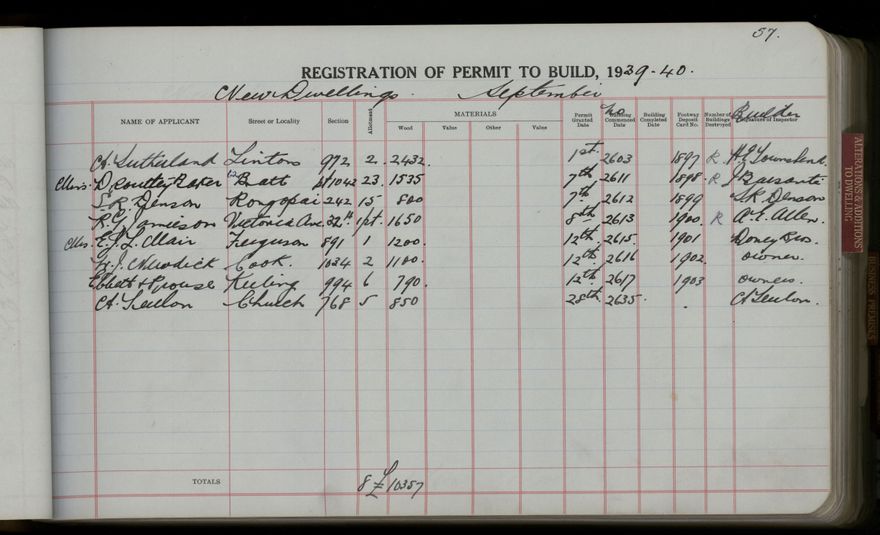 57.
REGISTRATION OF PERMIT TO BUILD, 1939-40.
New Dwellings. September
NAME OF APPLICANT Street or Locality Section Allotment MATERIALS Wood Value Other Value Permit Granted Date No Building Commenced Date Building Completed Date Footway Deposit Card No. Number of Buildings Destroyed Builder Signature of Inspector
A. Sutherland Lintons 972 2. 2432. 1st. 2603 1897 R. Townshend.
Miss. D. Baker Bratt 1042 23. 1535 7th 2611 1898 R
S. R. Denson Rongopai 242 15 800 7th 2612 1899 S. R. Denson
R. G. Jamieson Victoria Ave. 32 1pt. 1650 8th 2613 1900. R A. E. Allen.
Mrs. E. J. L. Mair Ferguson 891 1 1200. 12th 2615. 1901 Doney Bros.
J. Newdick Cook. 1034 2 1100. 12th 2616 1902. owner.
Ebbett & Prouse Keeling 994 6 790. 12th 2617 1903 owners.
A. Seulon Church 768 5 850 28th 2635. A Seulon.
TOTALS 8 £ 10357
ALTERATIONS & ADDITIONS TO DWELLING
BUSINESS PREMISES